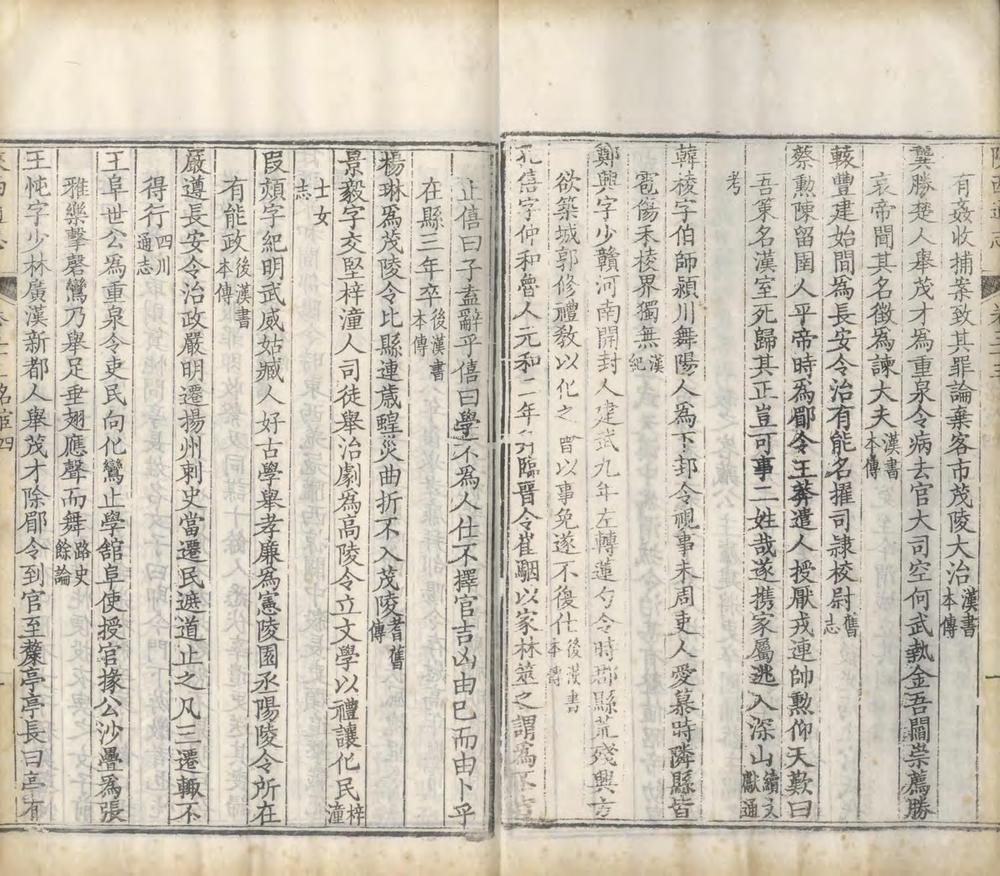 有姦收捕案致其罪論棄客市茂陵大治漢書本傳
龔勝楚人舉茂才爲重泉令病去官大司空何武執金吾閻崇薦勝
哀帝聞其名徵爲諫大夫漢書本傳
轅豐建始間爲長安令治有能名擢司隷校尉舊志
蔡勲陳留圉人平帝時爲郿令王莽遣人授厭戎連帥勲仰天歎曰
吾策名漢室死歸其正豈可事二姓哉遂携家屬逃入深山續文獻通
考
韓稜字伯師潁川舞陽人爲下邽令視事未周吏人愛慕時隣縣皆
雹傷禾稜界獨無漢紀
鄭興字少贛河南開封人建武九年左轉蓮勺令時郡縣荒殘興方
欲築城郭修禮教以化之會以事免遂不復仕後漢書本傳
孔僖字仲和魯人元和二年 臨晉令崔駰以家林筮之謂爲不吉
止僖曰子盍辭乎僖曰學不爲人仕不擇官吉凶由已而由卜乎
在縣三年卒後漢書本傳
楊琳爲茂陵令比縣連歲蝗災曲折不入茂陵耆舊傳
景毅字文堅梓潼人司徒舉治劇爲高陵令立文學以禮讓化民梓潼
士女志
叚熲字紀明武威姑臧人好古學舉孝廉爲憲陵園丞陽陵令所在
有能政後漢書本傳
嚴遵長安令治政嚴明遷揚州刺史當遷民遮道止之凡三遷輙不
得行四川通志
王阜世公爲重泉令吏民向化鸞止學舘阜使授官掾公沙疊爲張
雅樂擊磬鸞乃舉足垂翅應聲而舞路史餘論
王忳字少林廣漢新都人舉茂才除郿令到官至斄亭亭長曰亭有